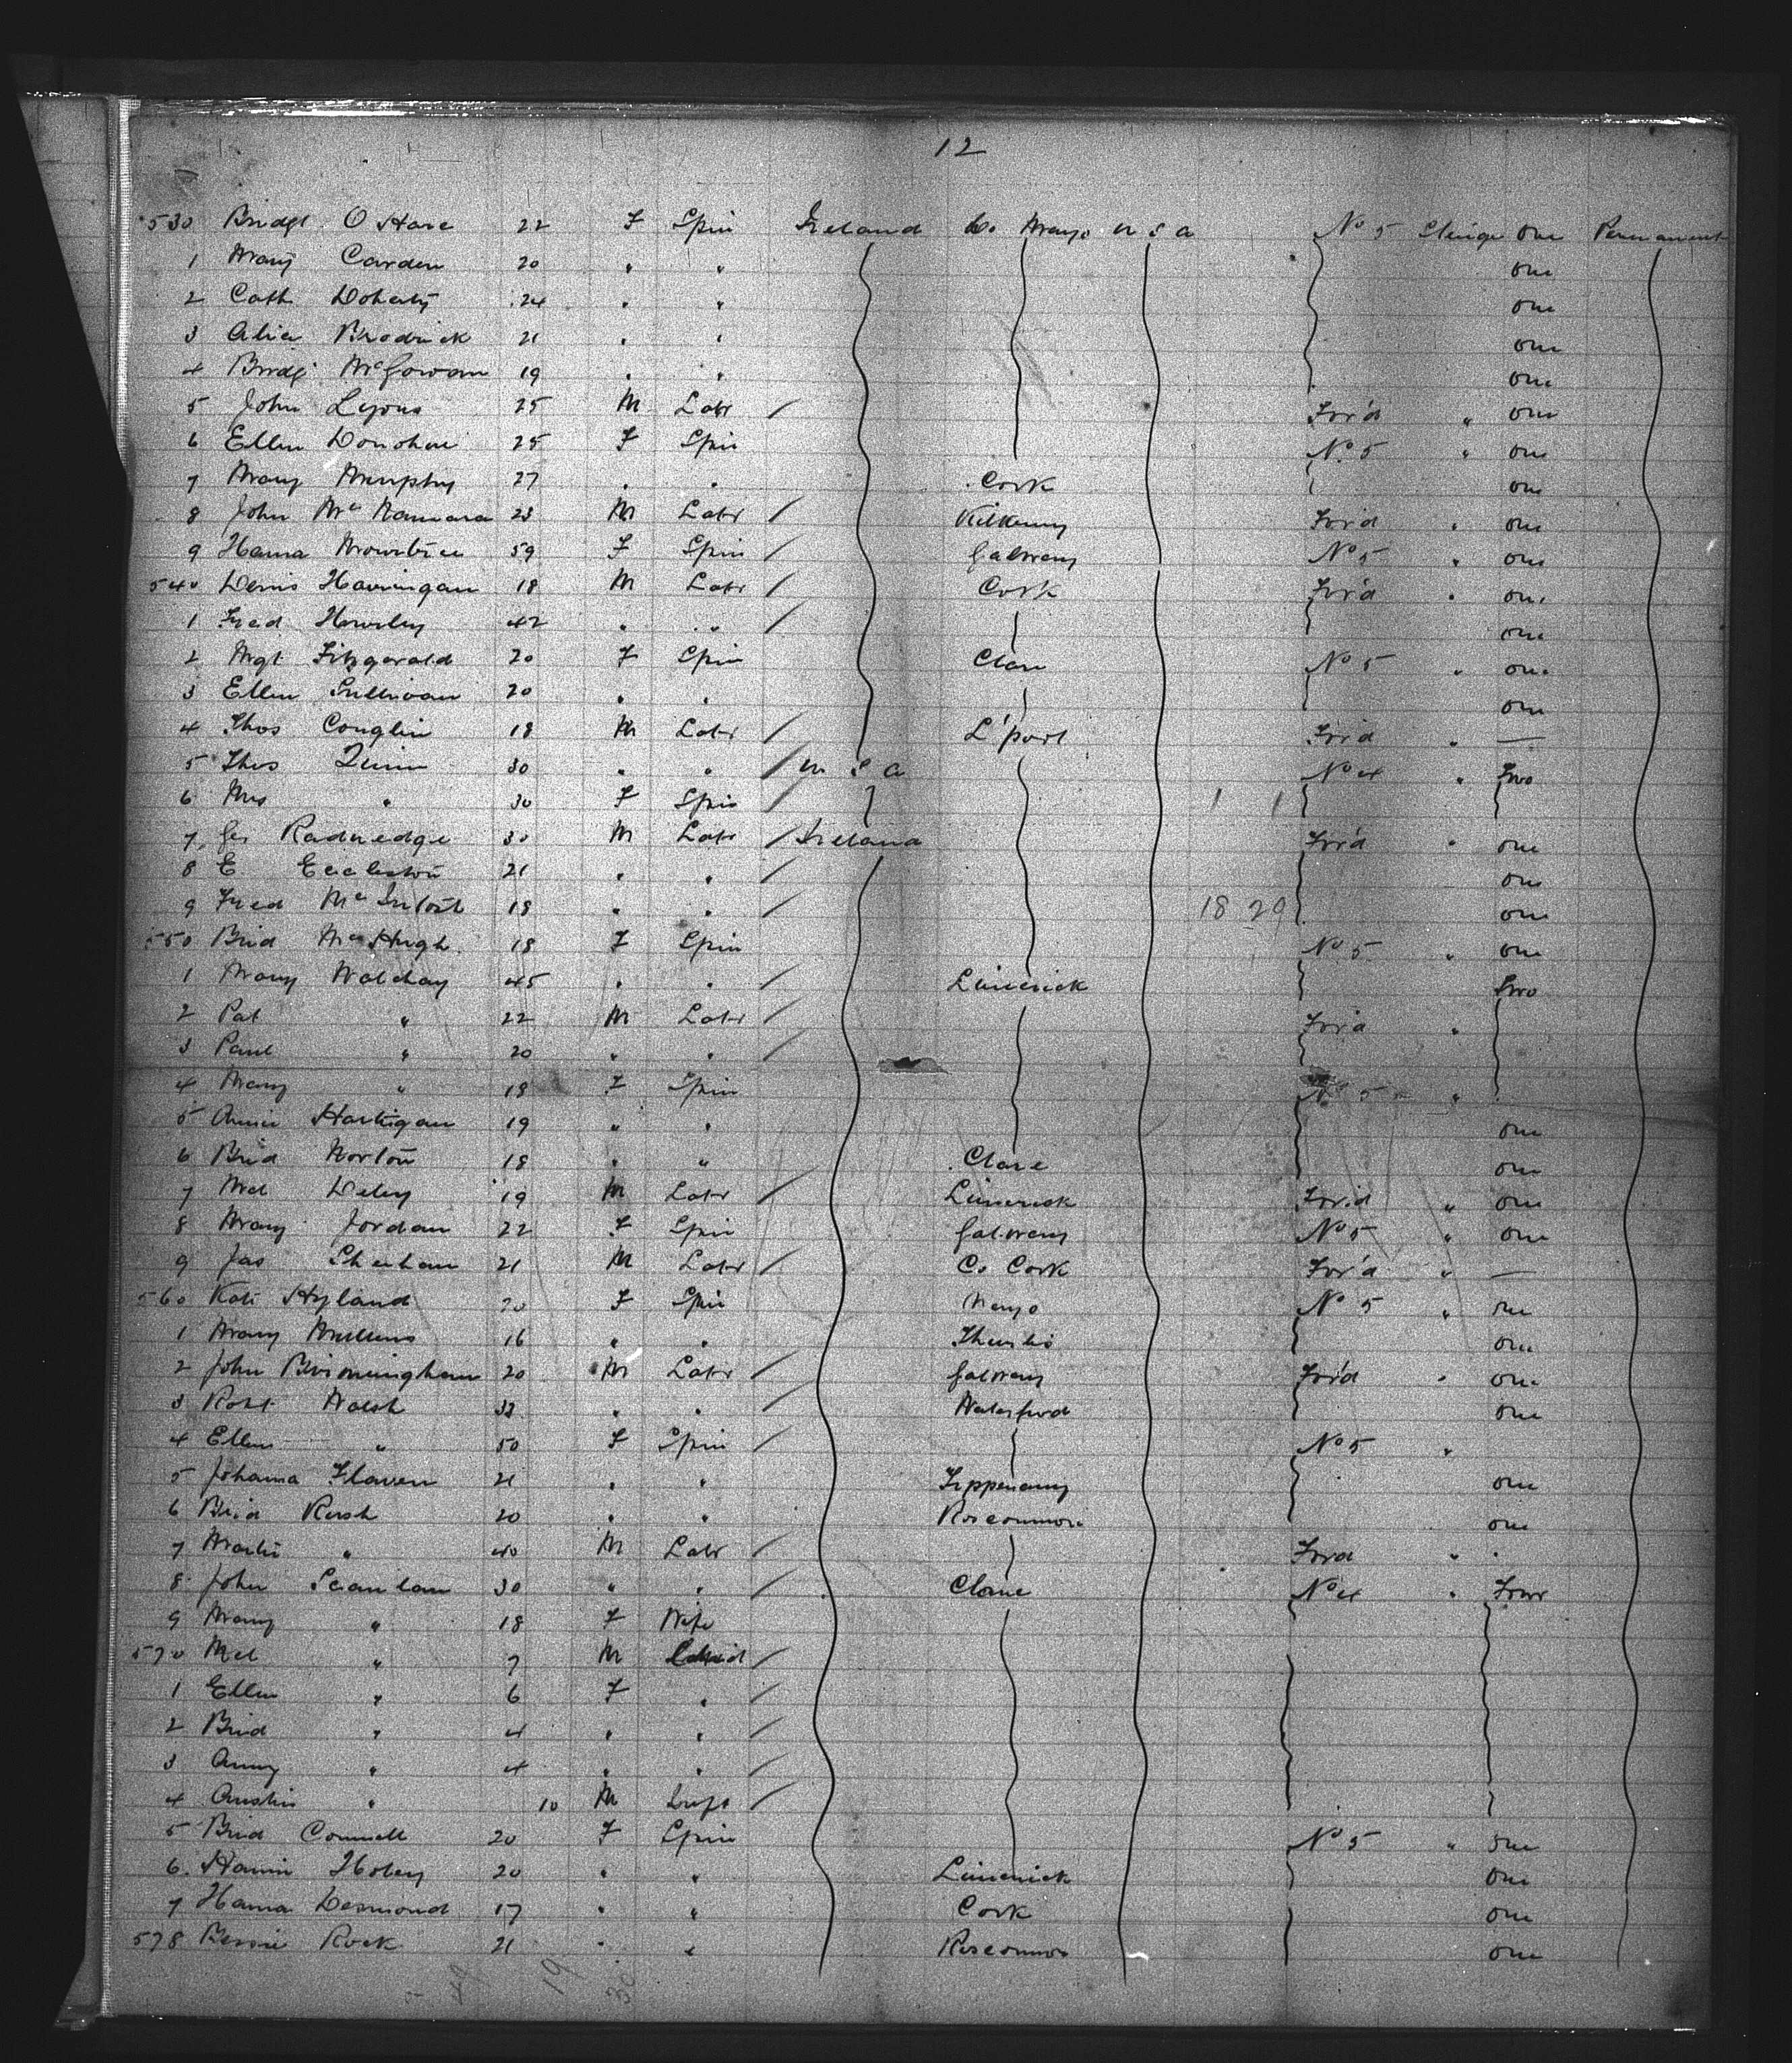 12
530 Bridgt O Hare 22 F Spin Ireland Co. Mayo U S A No 5 Steige one Permanent
1 Mary Carden 20 " " one
2 Cath Doherty 24 " " one
3 Alice Brodrick 21 " " one
4 Bridg McGowan 19 " " one
5 John Lyons 25 M Labr / For'd " one
6 Ellen Donohue 25 F Spin No 5 " one
7 Mary Murphy 27 " " Cork one
8 John McNamara 23 M Labr / Kilkenny For'd " one
9 Hanna 59 F Spin / Galway No 5 " one
540 Denis Hannigan 18 M Labr / Cork For'd " one
1 Fred Hawley 42 " " / one
2 Mgt Fitzgerald 20 F Spin Clare No 5 " one
3 Ellen Sullivan 20 " " one
4 Thos Couglin 18 M Labr / L'pool For'd " —
5 Thos Quinn 30 " " / U S A No 4 " Two
6 Mrs " 30 F Spin / 1 1
7 Radnedge 30 M Labr / Ireland For'd " one
8 E Eccleston 21 " " / one
9 Fred McIntosh 18 " " / 18 29 one
550 Brid McHugh 18 F Spin No 5 " one
1 Mary 45 " " / Limerick Two
2 Pat " 22 M Labr / For'd "
3 Paul " 20 " " /
4 Mary " 18 F Spin No 5 "
5 Annie Hartigan 19 " " one
6 Brid Norton 18 " " Clare one
7 Ml 19 M Labr / Limerick For'd " one
8 Mary Jordan 22 F Spin Galway No 5 " one
9 Jas Sheehan 21 M Labr / Co Cork For'd " —
560 Kate Hyland 20 F Spin Mayo No 5 " one
1 Mary Mullins 16 " " Thurles one
2 John Birmingham 20 M Labr / Galway For'd " one
3 Robt Walsh 32 " " / Waterford one
4 Ellen " 50 F Spin / No 5 "
5 Johanna Flaven 21 " " Tipperary one
6 Brid Rush 20 " " Roscommon one
7 Martin " 40 M Labr / For'd "
8 John Scanlan 30 " " / Clare No 4 " Four
9 Mary " 18 F Wife
570 Ml " 7 M Child /
1 Ellen " 6 F " /
2 Brid " 4 " " /
3 Anny " 4 " " /
4 Austin " 10 M Inft /
5 Brid Connell 20 F Spin No 5 " one
6 Hannie 20 " " Limerick one
7 Hanna Desmond 17 " " Cork one
578 Bessie Rock 21 " " Roscommon one
49 19 30